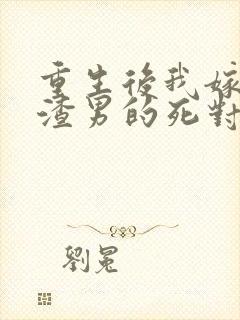 重生後我嫁
渣男的死對
劉冕